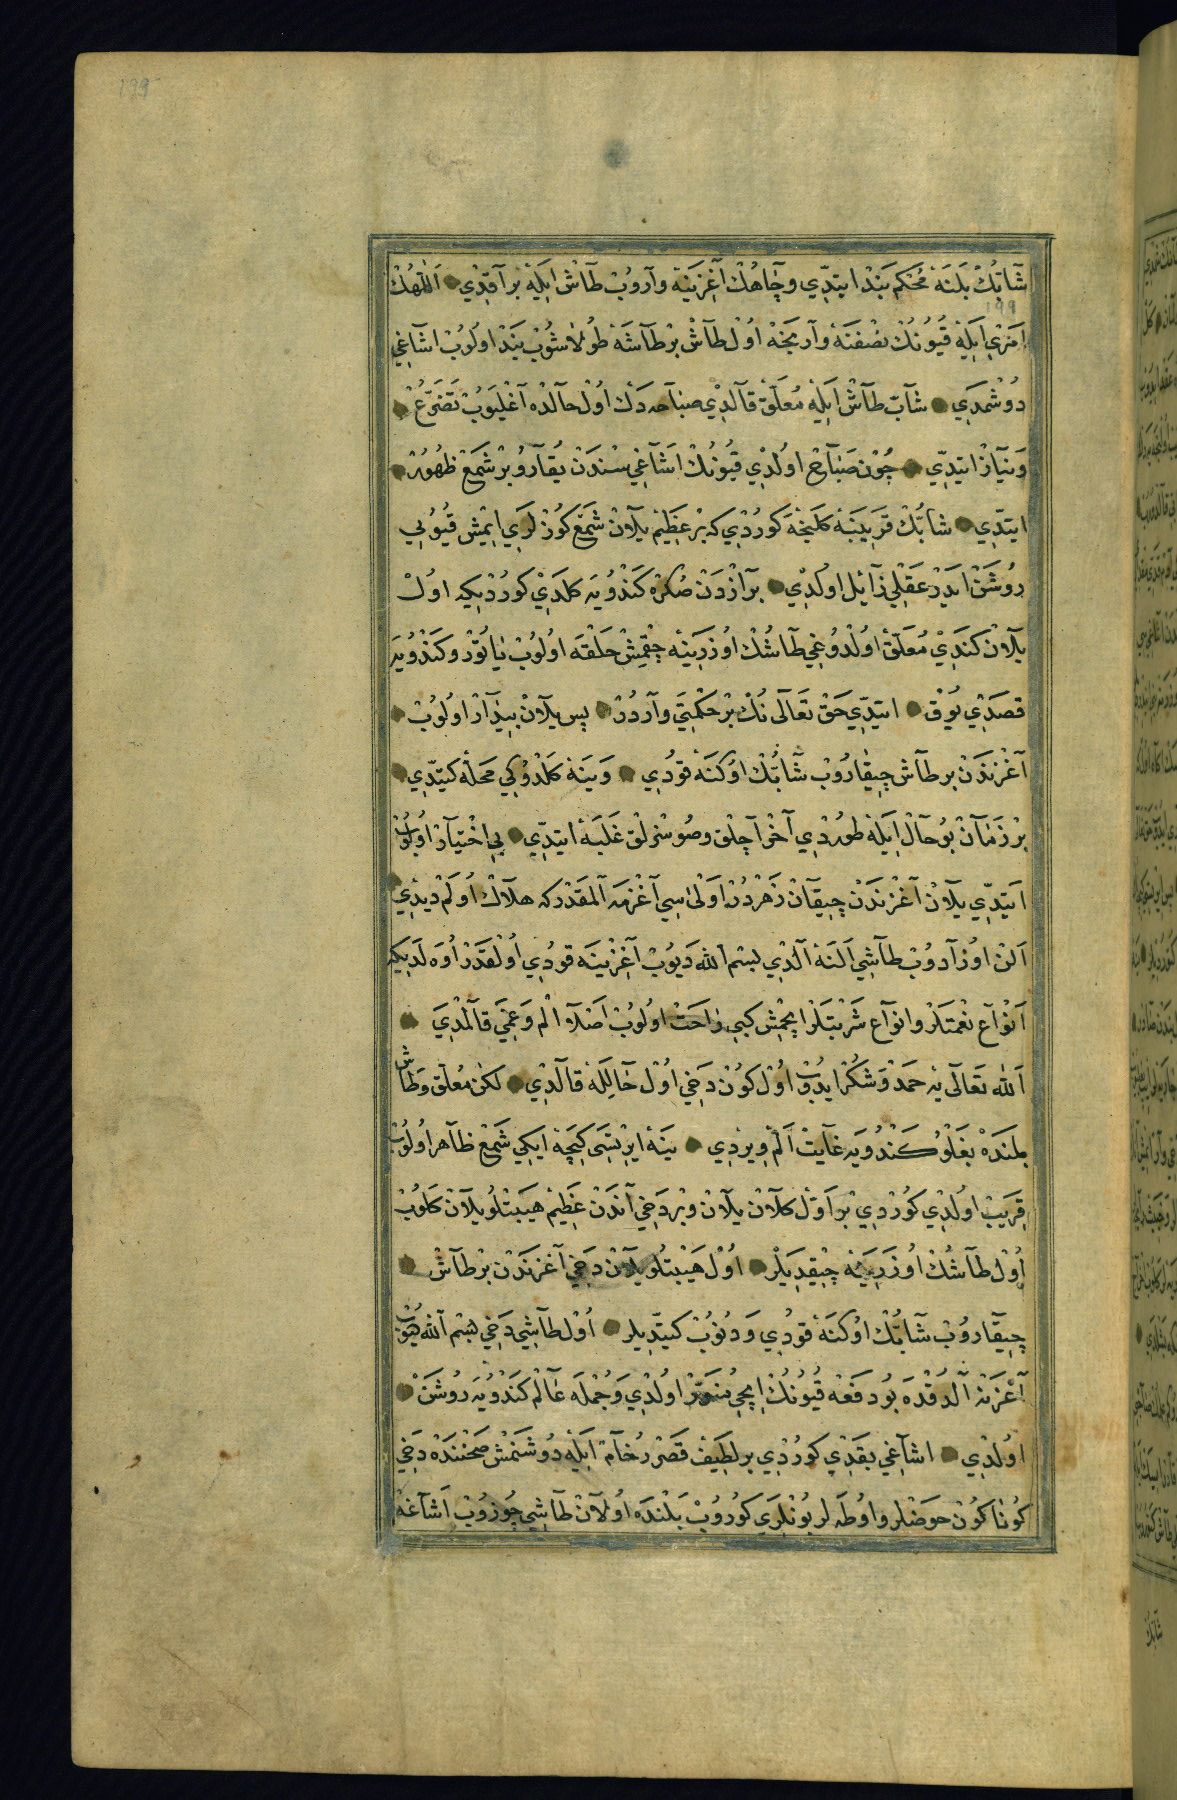 199
شَابُّكْ بَلِنَه مُحْكَم بَنْد ايتدّي وچَاهُكْ آغِزِينَه وَارُوبْ طَاشْ ايلَه بِرَاقْدِي اَللّٰهُكْ
199
اَمْرِي ايلَه قُيُونُكْ نِصْفِنَه وَارِيجَقْ اُولْ طَاشْ بِرْ طَاشَه طُولَاشُوبْ بَنْد اولُوبْ اشَاغِي
دُوشْمَدِي شَابّ طَاشْ ايلَه مُعَلَّقْ قَالدِي صَبَاحَه دَكْ اُولْ حَالدَه آغْلَيُوبْ تَضَرُّعْ
وَنيَازْ ايتدِّي چُونْ صَبَاحْ اولْدِي قُيُونُكْ اشَاغِي سِنْدَنْ يُقَارُو بِرْ شَمَعْ ظُهُورْ
ايتدِّي شَابُّكْ قَرِيبِنَه كَلِيجَكْ كورُدْي كه بِرْ عَظِيمْ يِلَانْ شَمَعْ كُوزْلَرِي ايمِشْ قُيُويِي
رُوشَنْ ايدَرْ عَقْلِي زَائِلْ اولْدِي بِرْ آزْدَنْ صُكْرَه كَنْدُويَه كَلدِي كورُدِيكه اولْ
يِلَانْ كَنْدِي مُعَلَّقْ اولْدُوغِي طَاشُكْ اوزَرِينَه چِقْمِشْ حَلْقَه اولُوبْ يَاتُورْ وكَنْدُويَه
قَصْدِي يُوقْ ايتدِّي حَقْ تَعَالَى نُكْ بِرْ حِكْمَتِي وَارْدُرْ پس يِلَانْ بِيدَارْ اولُوبْ
آغْزِنْدَنْ بر طَاشْ چِيقَارُوبْ شَابُّكْ اوكِنَه قودُي وَينَه كَلْدُوكِي مَحَلَّه كيتدِّي
بِرْ زَمَانْ بُو حَالْ ايلَه طوردِي آخْر آچْلِقْ وصُوسُزلِقْ غَلَبَه ايتدِّي بي اخْتِيَارْ اولُوبْ
ايتدِّي يِلَانْ آغْزِنْدَنْ چِيقَانْ زَهْردُرْ اَوْلٰى سِي آغْزِمَه آلمَقْدَرْ كه هلَاكْ اولَمْ ديدِي
اَلنْ اوزَادُوبْ طَاشِي اَلنَه آلدِي بسْم الله دَيُوبْ آغْزِينَه قودُي اُولْقَدَرْ
اَنْوَاعْ نِعْمَتلَرْ وانوَاعْ شَرْبَتلَرْ ايچْمِشْ كِبِي رَاحَتْ اولُوبْ اصْلَا اَلَمْ وَغمِّي قَالمَدِي
اَلله تَعَالَى يَه حَمْدْ وَشُكْر ايدُوبْ اُولْ كُونْ دَخِي اُولْ حَالِلَه قَالدِي لكنْ مُعَلَّقْ وطَاش
بلِنْدَه بغلُو كَنْدُويَه غَايَتْ اَلَمْ ويردِي ينَه ايرْتَسِي كِيجَه ايكِي شَمَعْ ظَاهر اولُوبْ
قَرِيبْ اولْدِي كورُدِي بر اَوَّلْ كَلانْ يِلَانْ وبِرْ دَخِي آنْدَنْ عَظِيمْ هَيْبَتلُو يِلَانْ كَلُوبْ
اُولْ طَاشُكْ اُوزَرِينَه چِيقْدِيلَرْ اُولْ هَيْبَتلُو يِلَانْ دَخِي آغْزِنْدَنْ بِرْ طَاشْ
چِيقَارُوبْ شَابُّكْ اوكِنَه قودُي وَدُونُوبْ كيتدِّيلر اُولْ طَاشِي دَخِي بسْم الله ديُوبْ
آغْزِنَه آلدُقْدَه بُو دَفْعَه قُيُونُكْ ايچِي مُنَوَّرْ اولْدِي وَجُمْلَه عَالَمْ كَنْدُويَه رُوشَنْ
اولْدِي اشَاغِي بقْدِي كورُدِي بر لَطِيفْ قَصْر رُخَامْ ايلَه دُوشَنْمِشْ صَحْنِنْدَه دَخِي
كُونَاكُونْ حَوضْلر واوطَه لر بُونْلَرِي كورُوبْ بَلِنْدَه اولَانْ طَاشِي چُوزُوبْ اشَاغَه